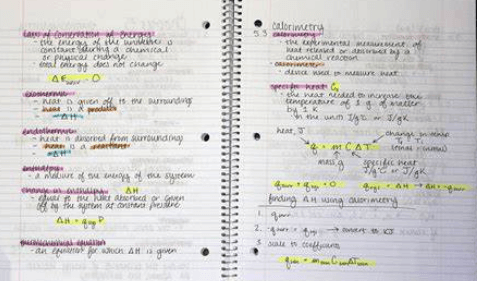 Laws of Conservation of Energy
- the energy of the universe is
constant during a chemical
or physical change
- total energy does not change
ΔE = 0
exothermic
- heat is given off to the surroundings
- heat is a product
- ΔH
endothermic
- heat is absorbed from surroundings
- heat is a reactant
+ΔH
enthalpy
- a measure of the energy of the system
change in enthalpy ΔH
- equal to the heat absorbed or given
off by the system at constant pressure
ΔH = q P
thermochemical equation
- an equation for which ΔH is given
calorimetry
5.3 calorimetry
- the experimental measurement of
heat released or absorbed by a
chemical reaction
- calorimeter
- device used to measure heat
specific heat
- the heat needed to increase the
temperature of 1 g of matter
by 1 K
in the unit J/g°C or J/gK
heat, J
change in
q = m C Δ T
mass, g
specific heat
J/g°C or J/gK
finding ΔH using calorimetry
1. q
2. → convert to KJ
3. scale to coefficients